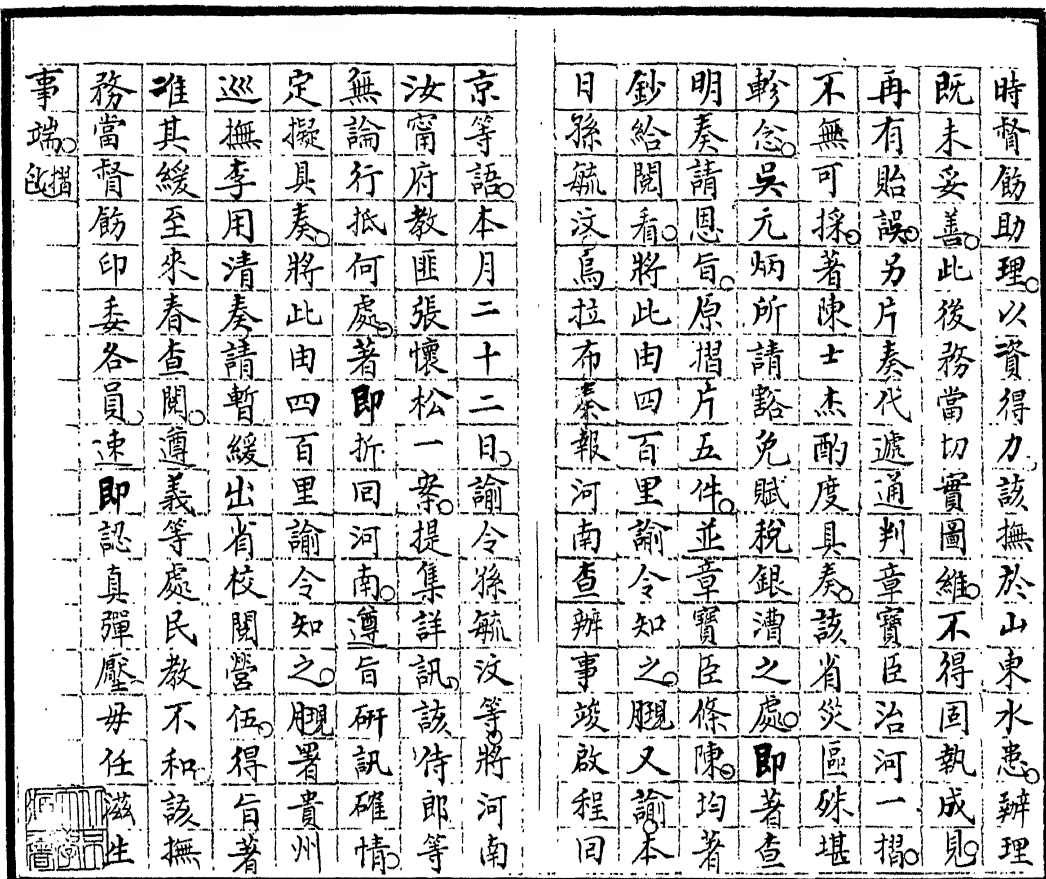 時督飭助理。以資得力。該撫於山東水患。辦理
既未妥善。此後務當切實圖維。不得固執成見。
再有貽誤。另片奏代遞通判章寶臣治河一摺。
不無可採。著陳士杰酌度具奏。該省災區殊堪
軫念。吳元炳所請豁免賦稅銀漕之處。即著查
明奏請恩旨。原摺片五件。並章寶臣條陳。均著
鈔給閱看。將此由四百里諭令知之。覞又諭。本
日孫毓汶烏拉布奏報河南查辦事竣啟程回
京等語。本月二十二日。諭令孫毓汶等。將河南
汝甯府教匪張懷松一案。提集詳訊。該侍郎等
無論行抵何處。著即折回河南。遵旨研訊確情。
定擬具奏。將此由四百里諭令知之。覞署貴州
巡撫李用清奏請暫緩出省校閱營伍。得旨著
准其緩至來春查閱。遵義等處民教不和。該撫
務當督飭印委各員。速即認真彈壓。毋任滋生
事端。摺包